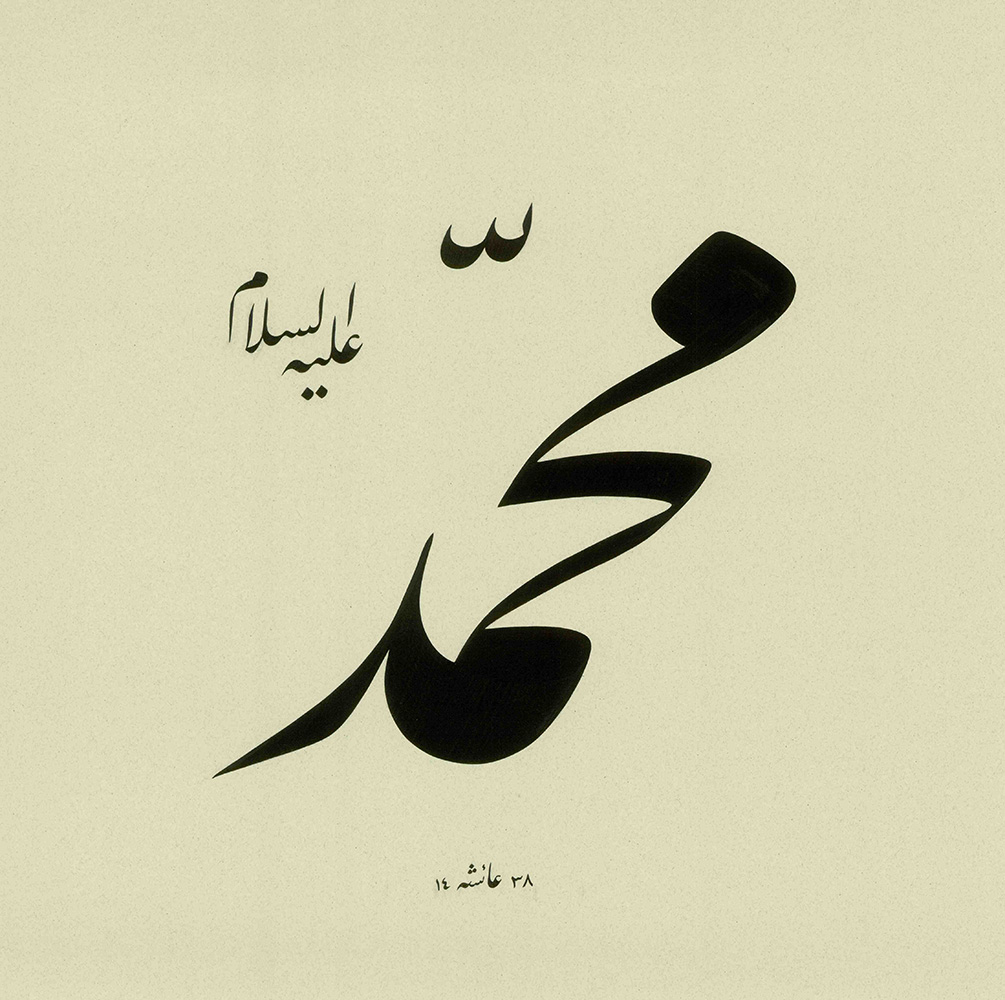 محمّد
عليه السلام
١٤ عائشه ٣٨